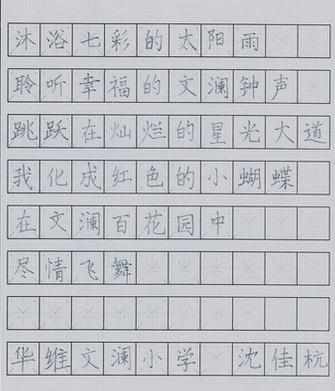 沐浴七彩的太阳雨
聆听幸福的文澜钟声
跳跃在灿烂的星光大道
我化成红色的小蝴蝶
在文澜百花园中
尽情飞舞
华维文澜小学 沈佳杭